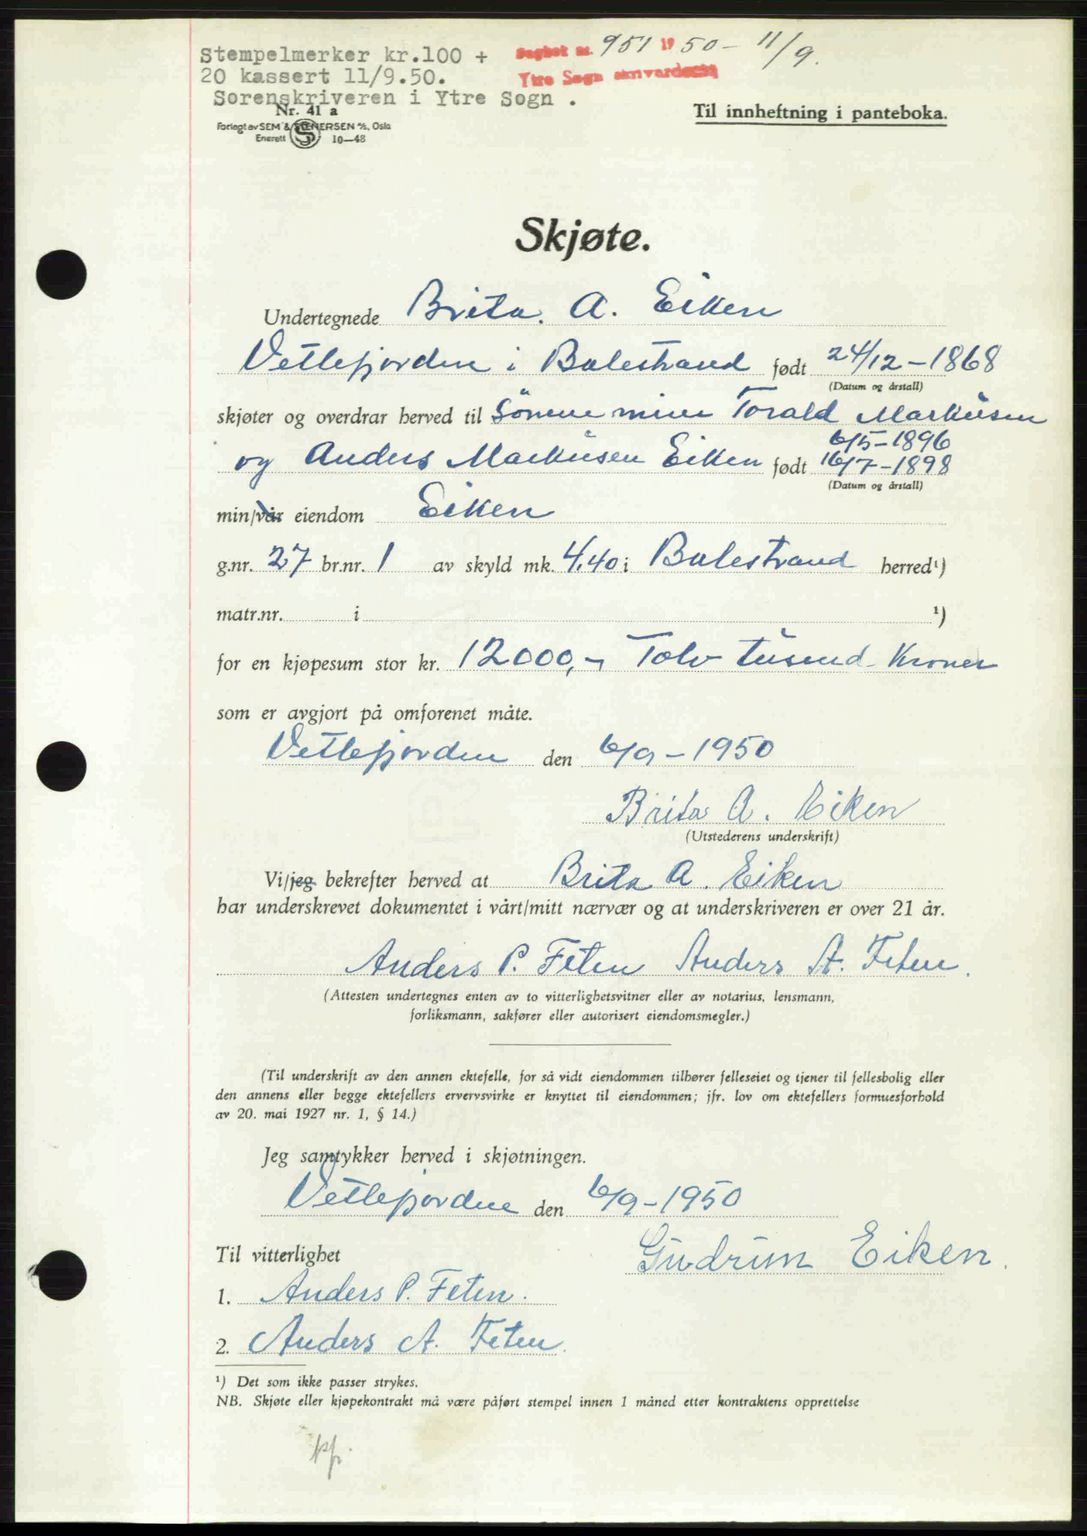 Stempelmerker kr.100 +
20 kassert 11/9.50.
Sorenskriveren i Ytre Sogn .
Dagbok nr. 951 1950 - 11/9.
Ytre Sogn
Nr. 41 a
Forlagt av SEM & STENERSEN A/S, Oslo
Enerett 10—48
Til innheftning i panteboka.
Skjøte.
Undertegnede Brita. A. Eiken
Vetlefjorden i Balestrand født 24/12-1868
(Datum og årstall)
skjøter og overdrar herved til Sönene mine Torald Markusen
6/5-1896
og Anders Markusen Eiken født 16/7-1898
(Datum og årstall)
min/vår eiendom Eiken
g.nr. 27 br.nr. 1 av skyld mk. 4,40 i Balestrand herred¹)
matr.nr. i ¹)
for en kjøpesum stor kr. 12000,- Tolv tusend Kroner
som er avgjort på omforenet måte.
Vetlefjorden den 6/9-1950
Brita A. Eiken
(Utstederens underskrift)
Vi/jeg bekrefter herved at Brita A. Eiken
har underskrevet dokumentet i vårt/mitt nærvær og at underskriveren er over 21 år.
Anders P. Feten Anders A. Feten.
(Attesten undertegnes enten av to vitterlighetsvitner eller av notarius, lensmann,
forliksmann, sakfører eller autorisert eiendomsmegler.)
(Til underskrift av den annen ektefelle, for så vidt eiendommen tilhører felleseiet og tjener til fellesbolig eller
den annens eller begge ektefellers ervervsvirke er knyttet til eiendommen; jfr. lov om ektefellers formuesforhold
av 20. mai 1927 nr. 1, § 14.)
Jeg samtykker herved i skjøtningen.
Vetlefjorden den 6/9-1950
Til vitterlighet
Gudrun Eiken.
1. Anders P. Feten.
2. Anders A. Feten.
¹) Det som ikke passer strykes.
NB. Skjøte eller kjøpekontrakt må være påført stempel innen 1 måned etter kontraktens opprettelse